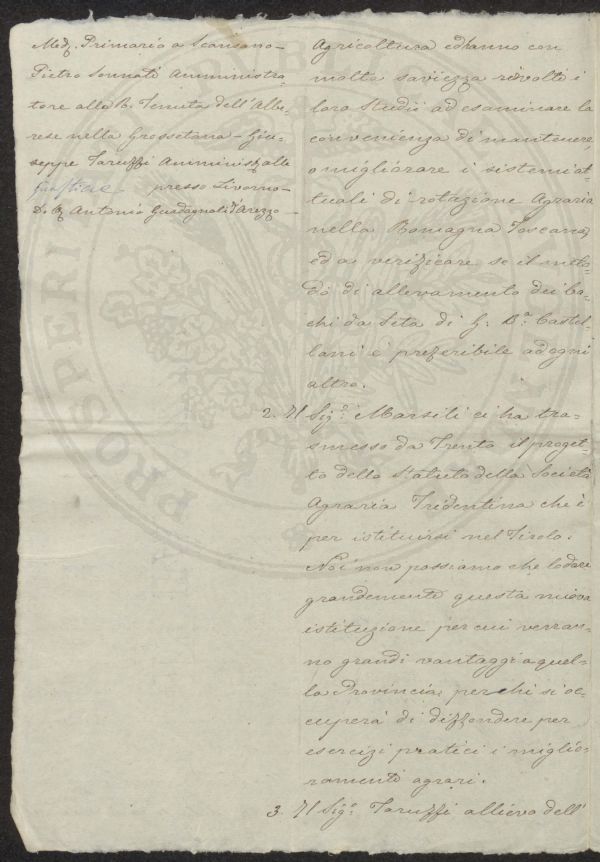 Med. Primario a Scansano-
Pietro Sonnati Amministra
tore alla R. Tenuta dell'Albe
rese nella Grossetana - Giu-
seppe Taruffi Amminist. alle
Guasticce presso Livorno-
D. Antonio Guadagnoli d'Arezzo-
Agricoltura ed hanno con
molta saviezza rivolti i
loro studii ad esaminare la
convenienza di mantenere,
o migliorare i sistemi at
tuali di rotazione Agraria
nella Romagna Toscana,
ed a verificare se il meto
do di allevamento dei ba
chi da Seta di G. Ba. Castel
lani è preferibile ad ogni
altro.
2. Il Sigr. Marsili ci ha tra=
smesso da Trento il proget
to dello Statuto della Società
Agraria Tridentina che è
per istituirsi nel Tirolo.
Noi non possiamo che lodare
grandemente questa nuova
istituzione per cui verran
no grandi vantaggi a quel-
la Provincia, perchi si oc=
cuperà di diffondere per
esercizi pratici i miglio=
ramenti agrari.
3. Il Sigr. Taruffi allievo dell'
PROSPERI
PUBLIC